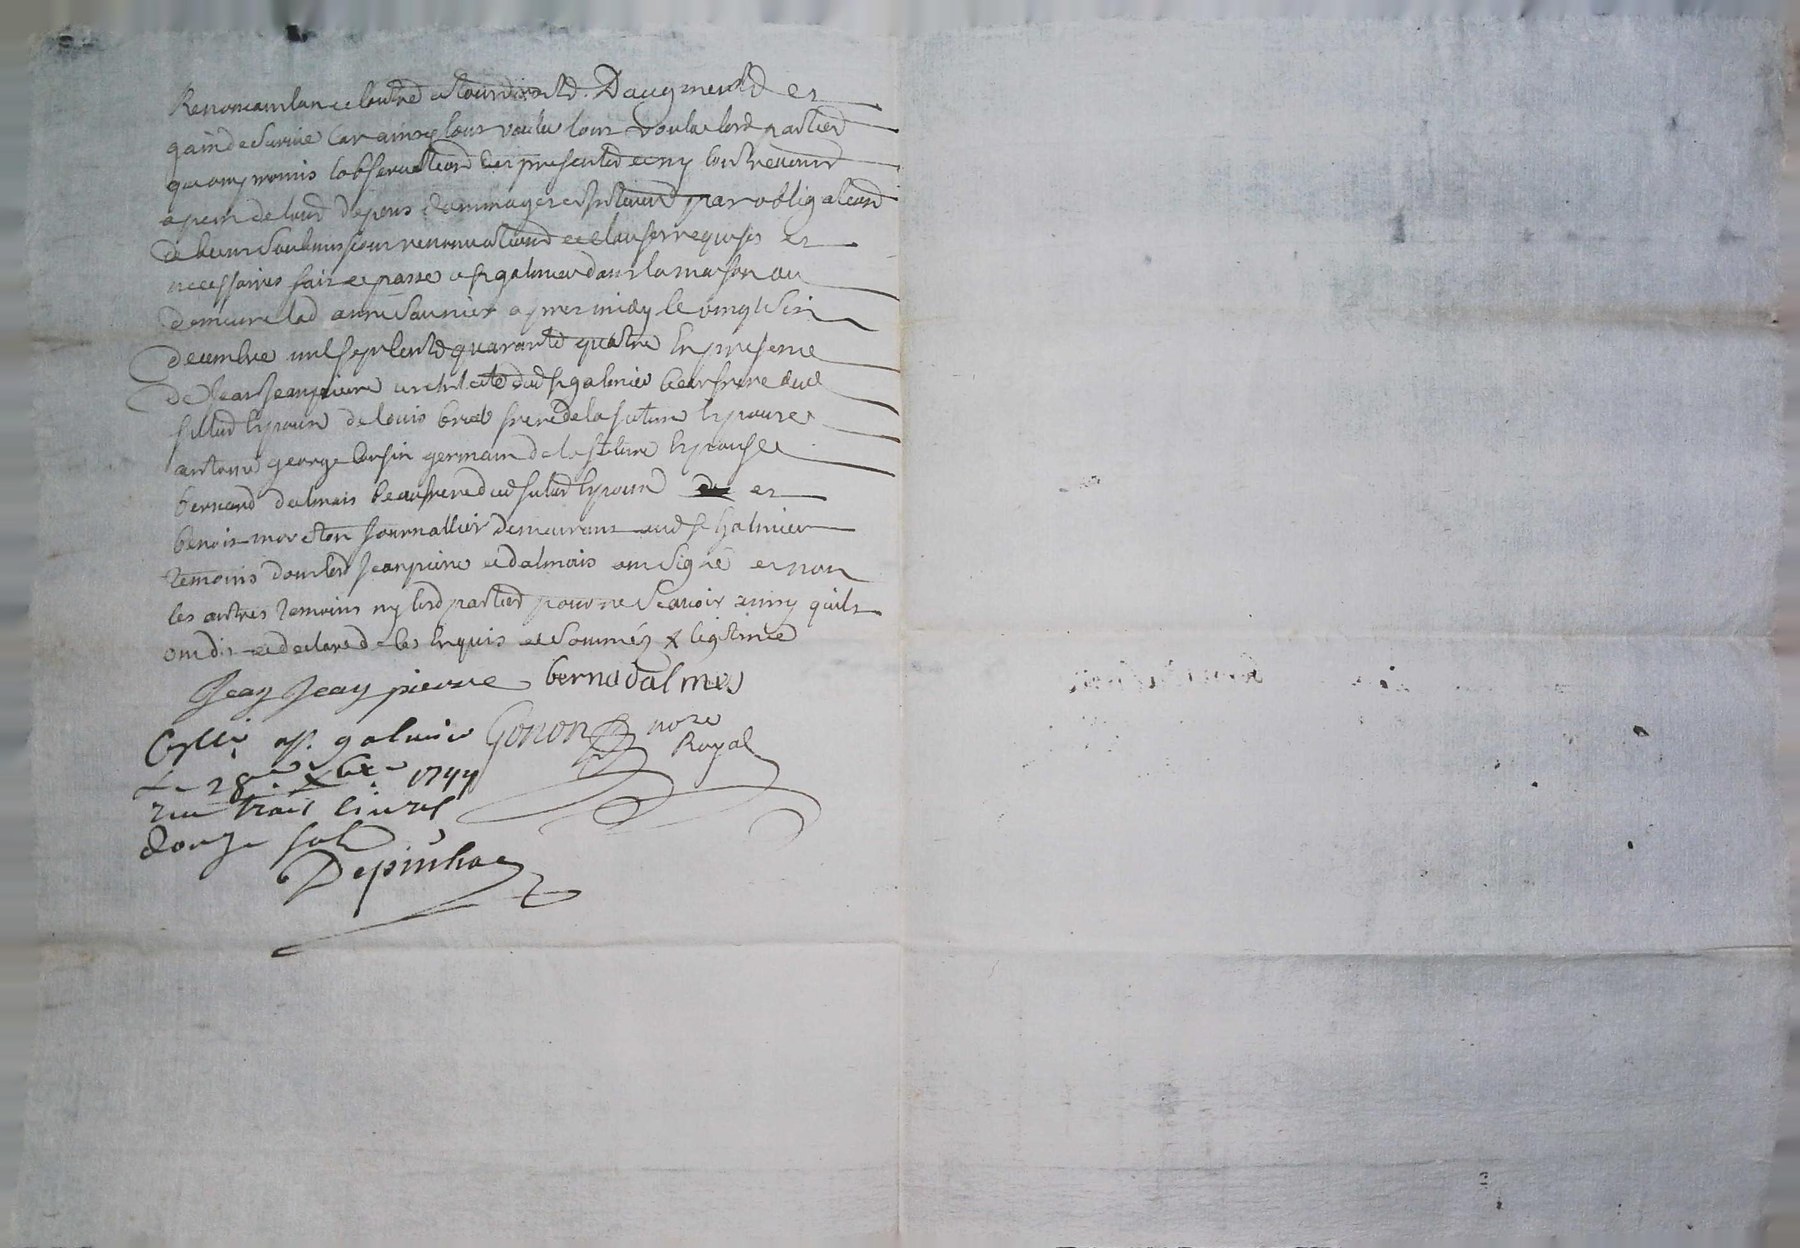 Renoncant lun e lautre a tous droits Daugments et
gain de survie car ainsy lont voulu lesd parties
qui ont promis lobservation des presentes et ny contrevenir
a peine de tous depens dommages et interests par obligations
de biens soubmissions renonciations et clauses requises et
necessaires fait et passé a st galmier dans la maison ou
demeure lad anne saunier apres midy le vingt six
decembre mil sept cents quarante quatre en presence
de Jean Jeanpierre architecte dud st galmier beau frere dud
futur Epoux de louis frere de la future Epouze
antoine george cousin germain de la future Epouse
bernard dalmais beaufrere dud futur Epoux et
benoit journallier demeurant aud st Galmier
temoins dont led Jeanpierre et dalmais ont signé et non
les autres temoins ny lesd parties pour ne scavoir ainsy quils
ont dit et declaré de ce Enquis et sommés x legitime
Jean Jean pierre berna dalmes
Cllé a st. galmier Gonon nore
Royal
Le 28me xbre 1744
Reçu trois livres
douze sols